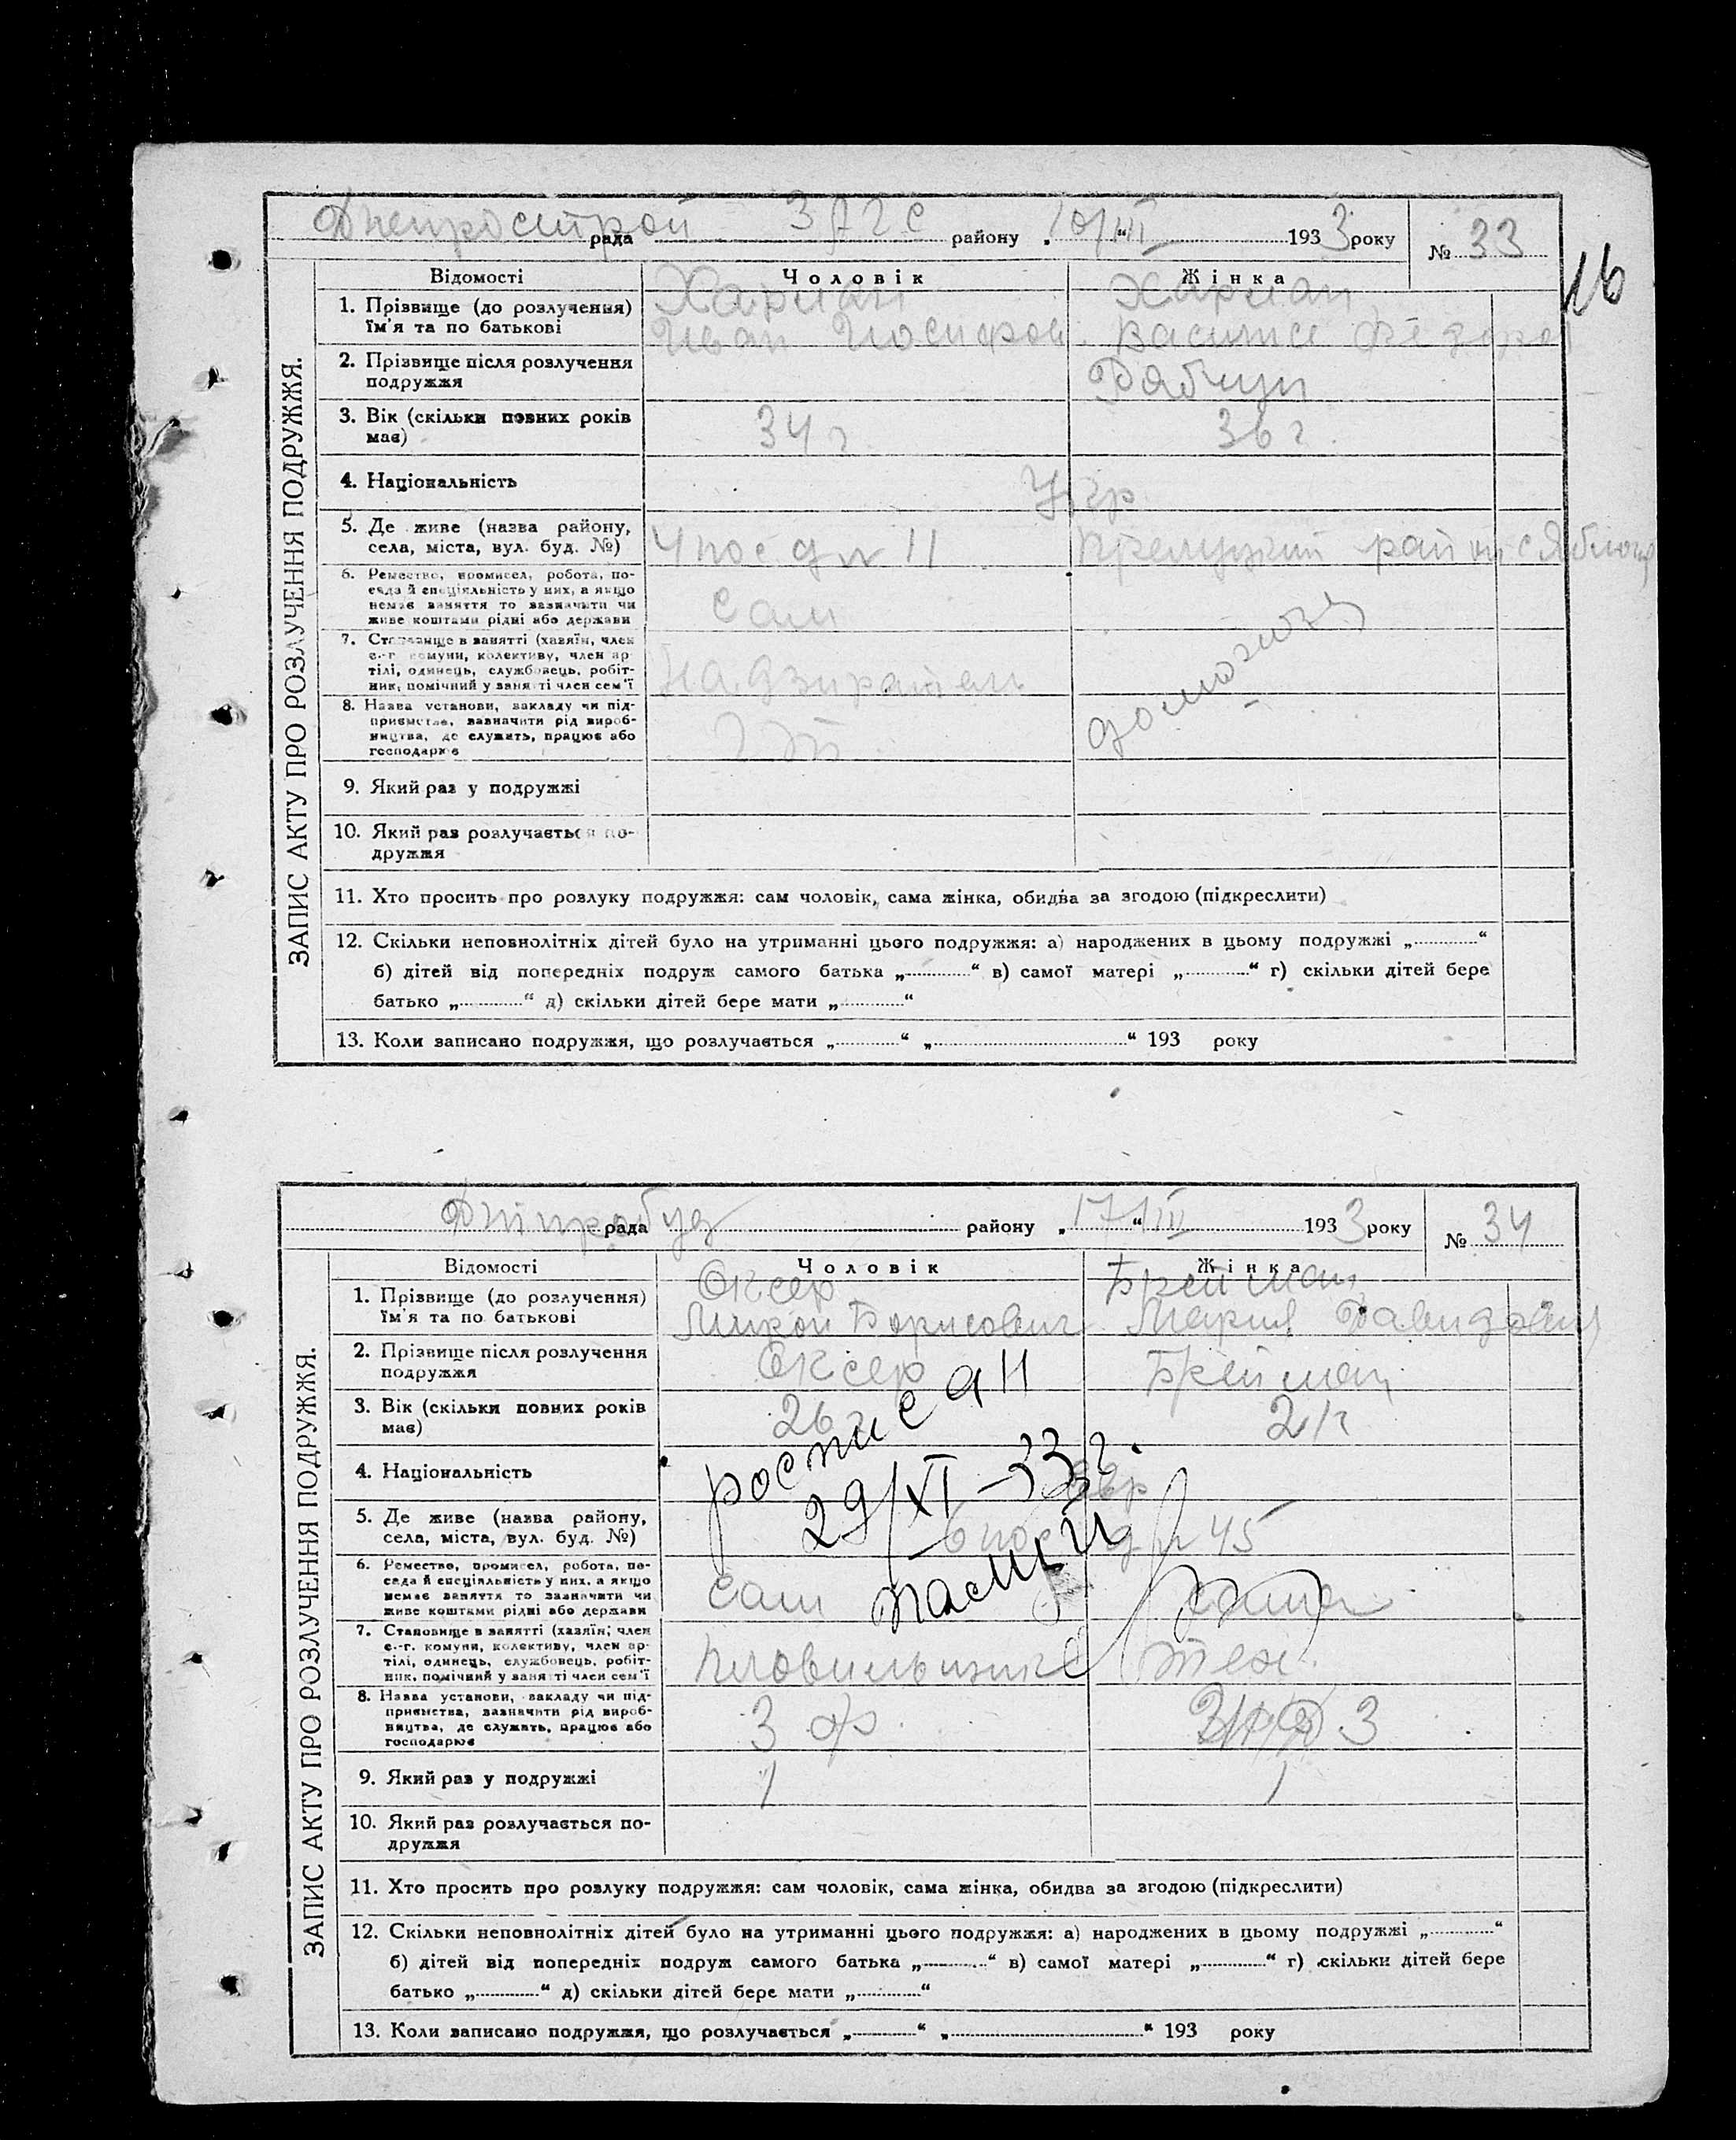 Днепрострой рада ЗАГС району „10/III“ 1933 року № 33
16
ЗАПИС АКТУ ПРО РОЗЛУЧЕННЯ ПОДРУЖЖЯ.
Відомості Чоловік Жінка
1. Прізвище (до розлучення) Харман Харман
ім'я та по батькові Иван Иосифов. Василиса Федоров
2. Прізвище після розлучення
подружжя
3. Вік (скільки повних років 34 г. 36 г.
має)
4. Національність Укр
5. Де живе (назва району, 4 пос д № 11
села, міста, вул. буд. №) район с
6. Ремество, промисел, робота, по-
сада й спеціяльність у них, а якщо
немає заняття то зазначити чи
живе коштами рідні або держави
сам
7. Становище в занятті (хазяїн, член
с.-г. комуни, колективу, член ар-
тілі, одинець, службовець, робіт-
ник, помічний у занятті член сем'ї
надзиратель
8. Назва установи, закладу чи під-
приємства, зазначити рід вироб-
ництва, де служить, працює або
господарює
9. Який раз у подружжі
10. Який раз розлучається по-
дружжя
11. Хто просить про розлуку подружжя: сам чоловік, сама жінка, обидва за згодою (підкреслити)
12. Скільки неповнолітніх дітей було на утриманні цього подружжя: а) народжених в цьому подружжі „............“
б) дітей від попередніх подруж самого батька „............“ в) самої матері „............“ г) скільки дітей бере
батько „............“ д) скільки дітей бере мати „............“
13. Коли записано подружжя, що розлучається „............“ „............“ 193 року
Дніпробуд рада району „17/III“ 1933 року № 34
ЗАПИС АКТУ ПРО РОЗЛУЧЕННЯ ПОДРУЖЖЯ.
Відомості Чоловік Жінка
1. Прізвище (до розлучення) Оксер Брейман
ім'я та по батькові Мирон Борисович Мария Давидовна
2. Прізвище після розлучення Оксер Брейман
подружжя
3. Вік (скільки повних років 26 г 21 г
має)
росписан
29/XI – 33 г.
4. Національність Евр
5. Де живе (назва району, 6 пос д № 45
села, міста, вул. буд. №)
6. Ремество, промисел, робота, по-
сада й спеціяльність у них, а якщо
немає заняття то зазначити чи
живе коштами рідні або держави
сам сама
7. Становище в занятті (хазяїн, член
с.-г. комуни, колективу, член ар-
тілі, одинець, службовець, робіт-
ник, помічний у занятті член сем'ї
плавильщик тех.
8. Назва установи, закладу чи під-
приємства, зазначити рід вироб-
ництва, де служить, працює або
господарює
3 3
9. Який раз у подружжі 1 1
10. Який раз розлучається по-
дружжя
11. Хто просить про розлуку подружжя: сам чоловік, сама жінка, обидва за згодою (підкреслити)
12. Скільки неповнолітніх дітей було на утриманні цього подружжя: а) народжених в цьому подружжі „............“
б) дітей від попередніх подруж самого батька „............“ в) самої матері „............“ г) скільки дітей бере
батько „............“ д) скільки дітей бере мати „............“
13. Коли записано подружжя, що розлучається „............“ „............“ 193 року